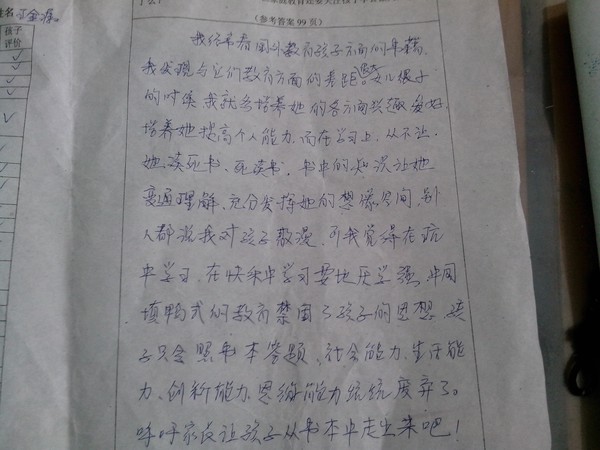 姓名
孩子
评价
(参考答案99页)
我经常看国外教育孩子方面的书籍,
我发现与它们教育方面的差距,女儿很小
的时候我就多培养她的各方面兴趣爱好.
培养她提高个人能力.而在学习上,从不让
她读死书,死读书,书中的知识让她
变通理解,充分发挥她的想像空间,别
人都说我对孩子散漫,可我觉得在玩
中学习,在快乐中学习要比厌学强,中国
填鸭式的教育禁固了孩子的思想,孩
子只会照书本答题,社会能力、生活能
力、创新能力、思维能力统统废弃了。
呼吁家长让孩子从书本中走出来吧!